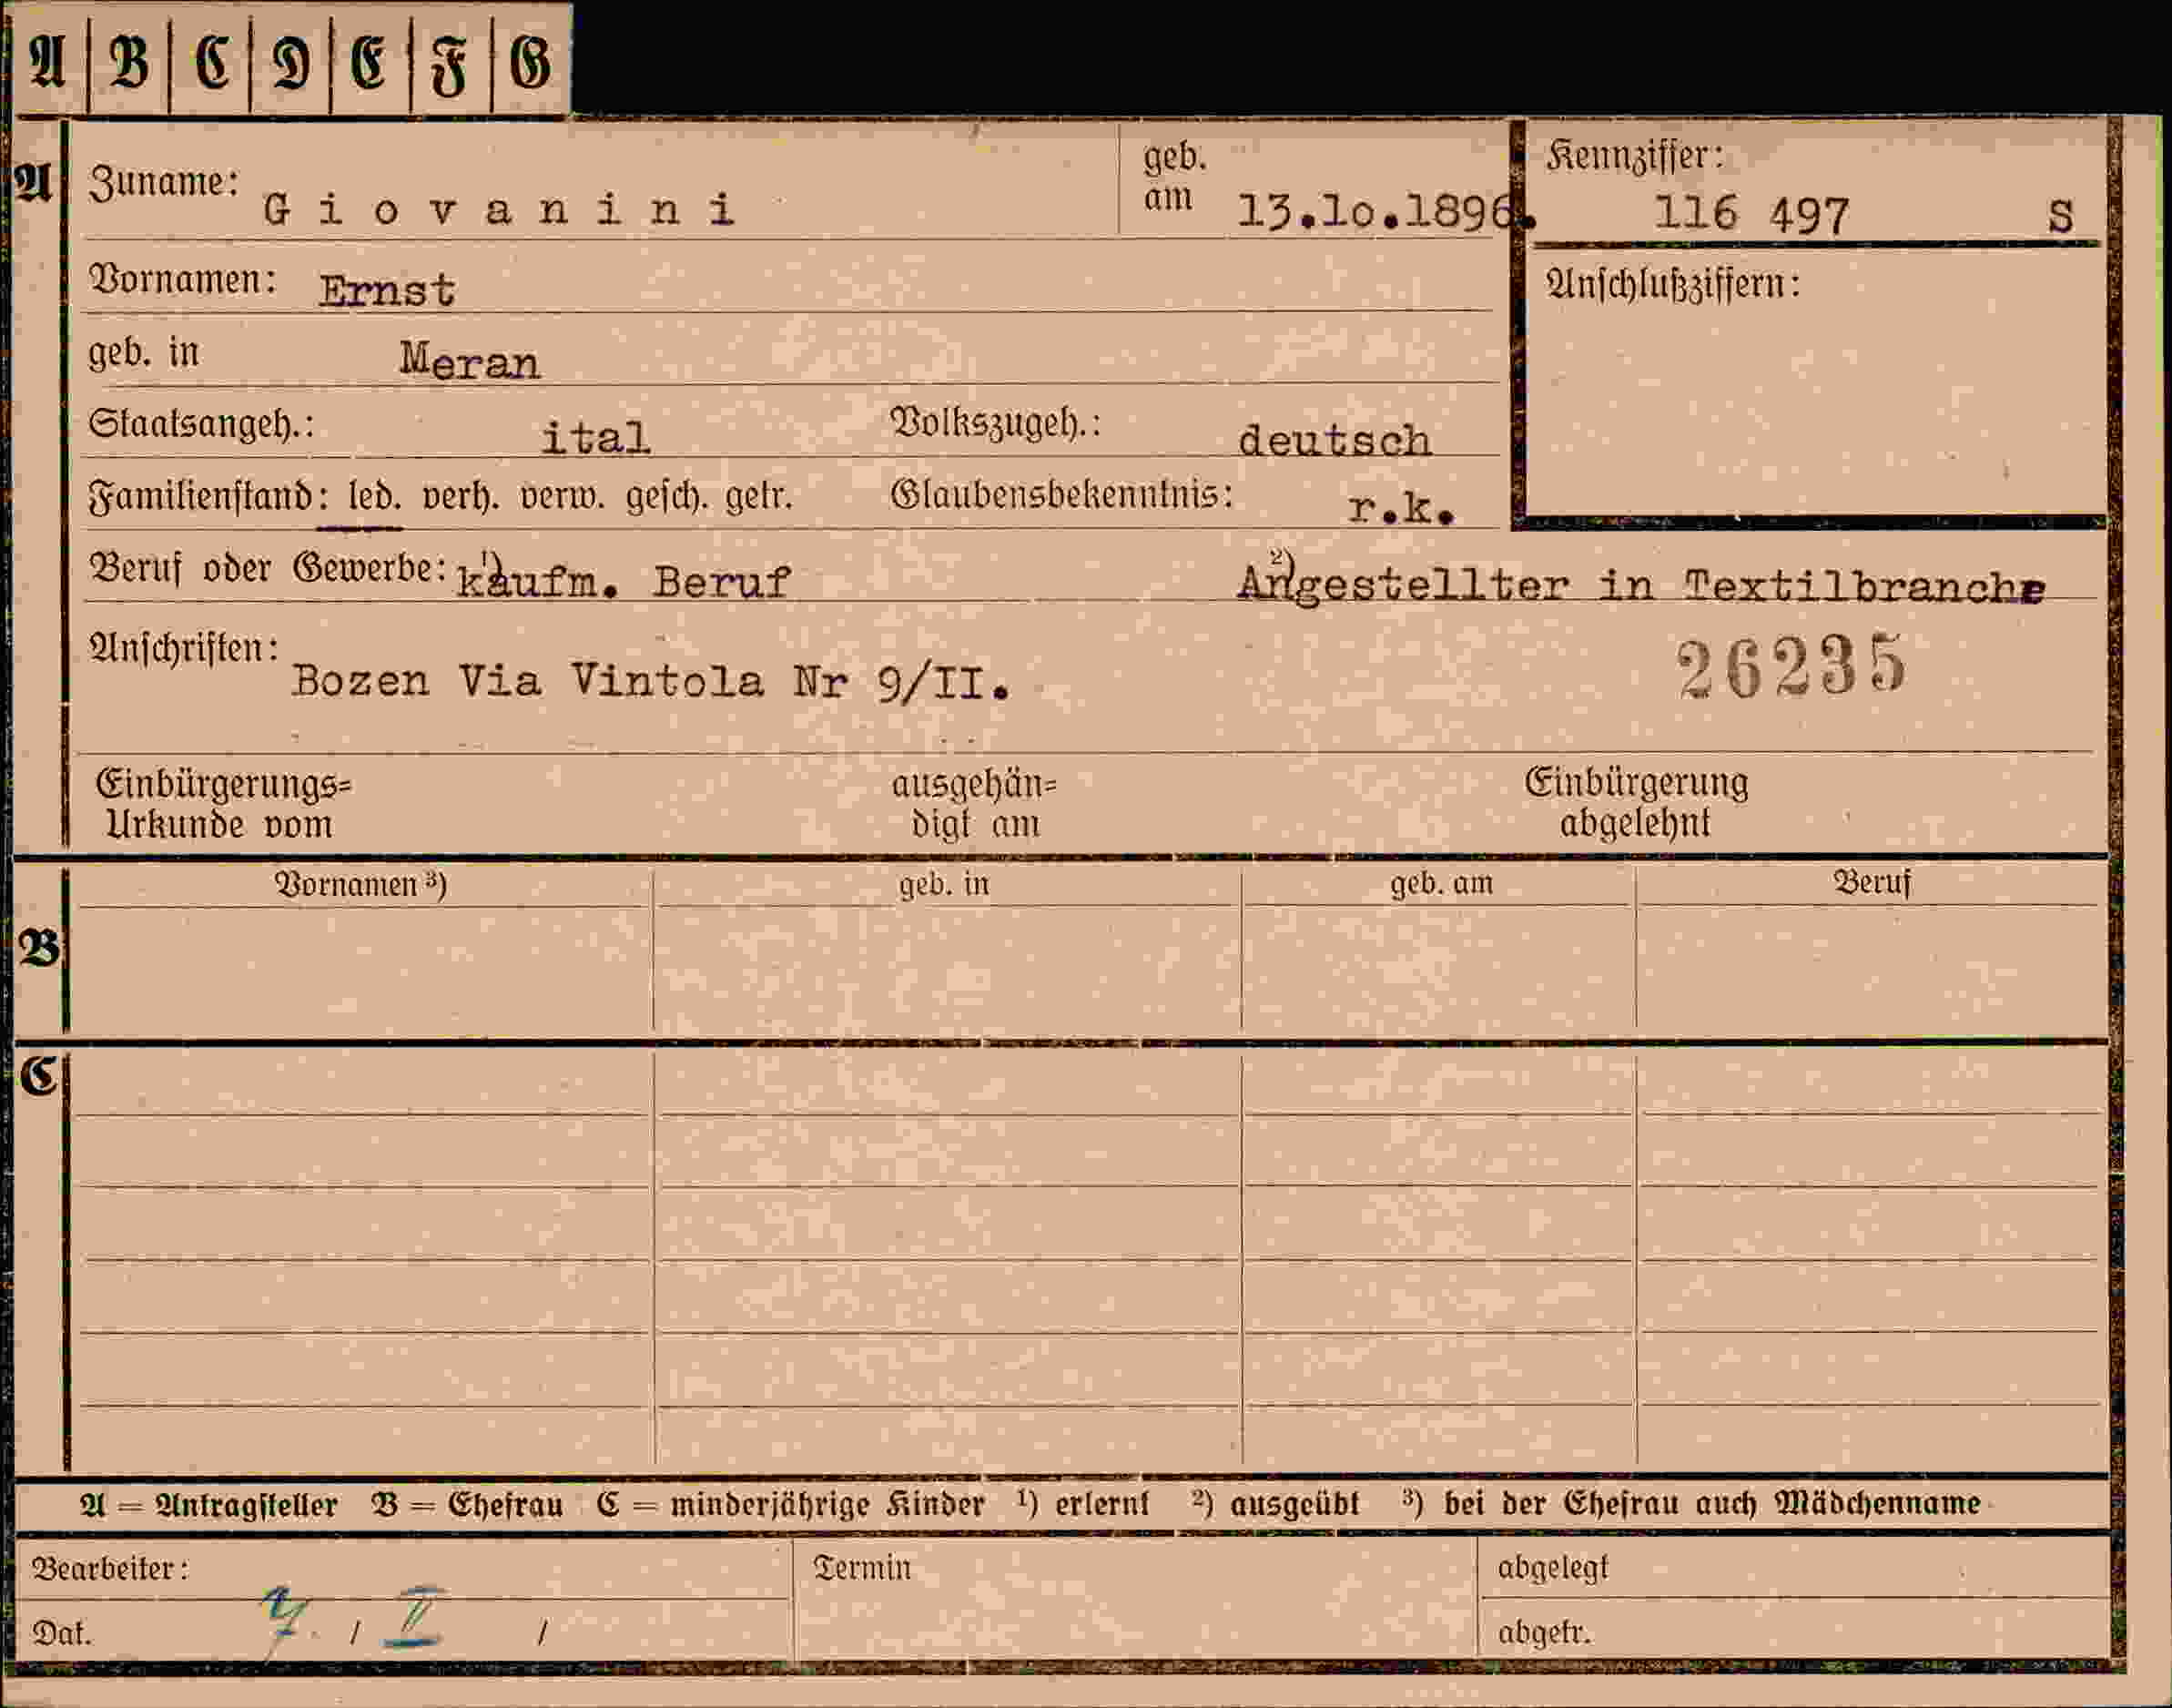 A B C D E F G
A Zuname: Giovanini geb. am 13.10.1896. Kennziffer: 116 497 S
Vornamen: Ernst Anschlußziffern:
geb. in Meran
Staatsangeh.: ital Volkszugeh.: deutsch
Familienstand: led. verh. verw. gesch. getr. Glaubensbekenntnis: r.k.
Beruf oder Gewerbe: 1) kaufm. Beruf 2) Angestellter in Textilbranche
Anschriften: Bozen Via Vintola Nr 9/II. 26235
Einbürgerungs= ausgehän= Einbürgerung
Urkunde vom digt am abgelehnt
Vornamen 3) geb. in geb. am Beruf
B
C
A = Antragsteller B = Ehefrau C = minderjährige Kinder 1) erlernt 2) ausgeübt 3) bei der Ehefrau auch Mädchenname
Bearbeiter: Termin abgelegt
Dat. 7. / II / abgetr.